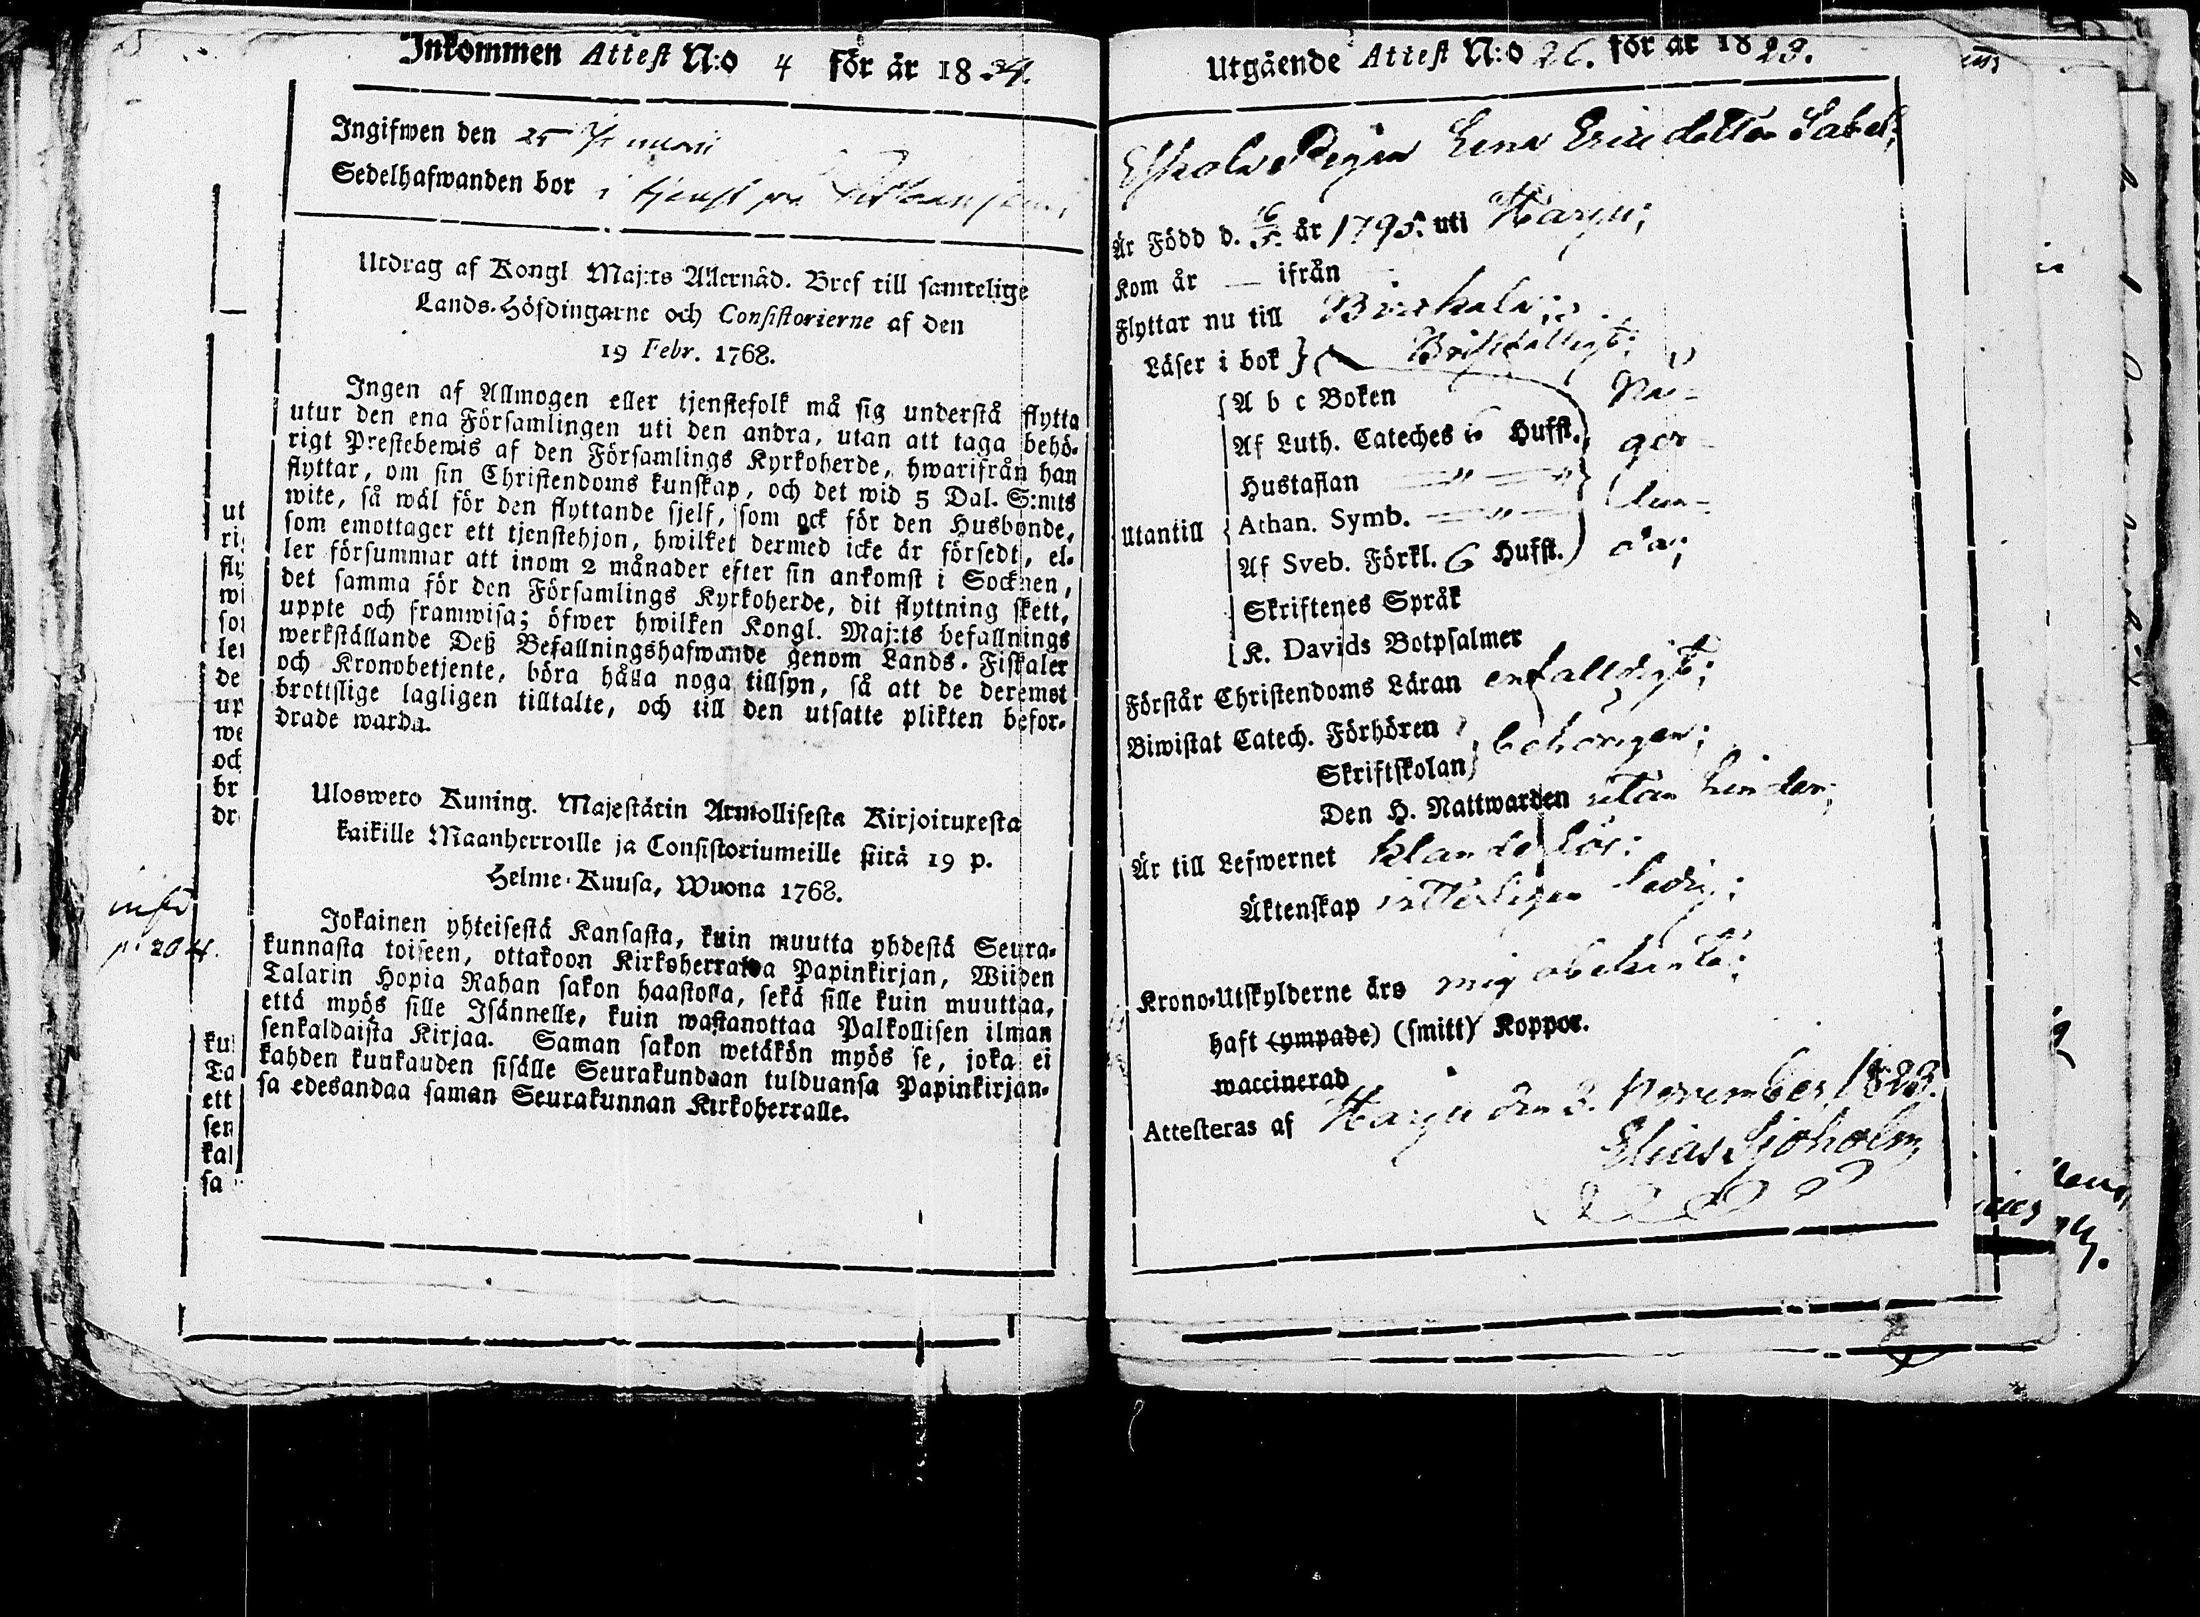 Inkommen Attest N:o 4 för år 1824.
Ingifwen den 25 Januari
Sedelhafwanden bor i tjenst på
Utdrag af Kongl. Maj:ts Allernåd. Bref till samtelige
Lands-Höfdingarne och Consistorierne af den
19 Febr. 1768.
Ingen af Allmogen eller tjenstefolk må sig understå flytta
utur den ena Församlingen uti den andra, utan att taga behö-
rigt Prestebewis af den Församlings Kyrkoherde, hwarifrån han
flyttar, om sin Christendoms kunskap, och det wid 5 Dal. S:mts
wite, så wäl för den flyttande sjelf, som ock för den Husbonde,
som emottager ett tjenstehjon, hwilket dermed icke är försedt, el-
ler försummar att inom 2 månader efter sin ankomst i Socknen,
det samma för den Församlings Kyrkoherde, dit flyttning skett,
uppte och framwisa; öfwer hwilken Kongl. Maj:ts befallnings
werkställande Deß Befallningshafwande genom Lands-Fiskaler
och Kronobetjente, böra hålla noga tillsyn, så att de deremot
brottslige lagligen tilltalte, och till den utsatte plikten befor-
drade warda.
Uloswero Kuning. Majestätin Armollisesta Kirjoituxesta
kaikille Maanherroille ja Consistoriumeille siitä 19 p.
Helme-Kuusa, Wuona 1768.
Jokainen yhteisestä Kansasta, kuin muutta yhdestä Seura-
kunnasta toiseen, ottakoon Kirkoherralda Papinkirjan, Wiiden
Talarin Hopia Rahan sakon haastolla, sekä sille kuin muuttaa,
että myös sille Isännelle, kuin wastanottaa Palkollisen ilman
senkaldaista Kirjaa. Saman sakon wetäkön myös se, joka ei
kahden kuukauden sisälle Seurakundaan tulduansa Papinkirjan-
sa edesandaa saman Seurakunnan Kirkoherralle.
p. 204.
ut
rig
fly
wi
so
ler
de
up
we
och
br
dr
kun
Ta
ett
sen
kal
sa
Utgående Attest N:o 26. för år 1823.
Pigan Lena Ericsdotter Sabel;
Är Född d. 16/5. år 1795. uti Harju;
Kom år — ifrån
Flyttar nu till Birkala;
Läser i bok } Bristfälligt;
A b c Boken Nå-
Af Luth. Cateches 6 Hufst. gor-
Hustaflan — " — "
Athan. Symb. — " — lun-
Utantill
Af Sveb. Förkl. 6 Hufst. da;
Skriftenes Språk
K. Davids Botpsalmer
Förstår Christendoms Läran enfalldigt;
Biwistat Catech. Förhören
Skriftskolan } behörigen;
Den H. Nattwarden utan hinder;
Är till Lefwernet klanderlös;
Äktenskap ledig;
Krono-Utskylderne äro mig obekanta;
haft (ympade) (smitt) Koppor.
waccinerad
Attesteras af Harju den 3. November 1823.
Elias Sjöholm